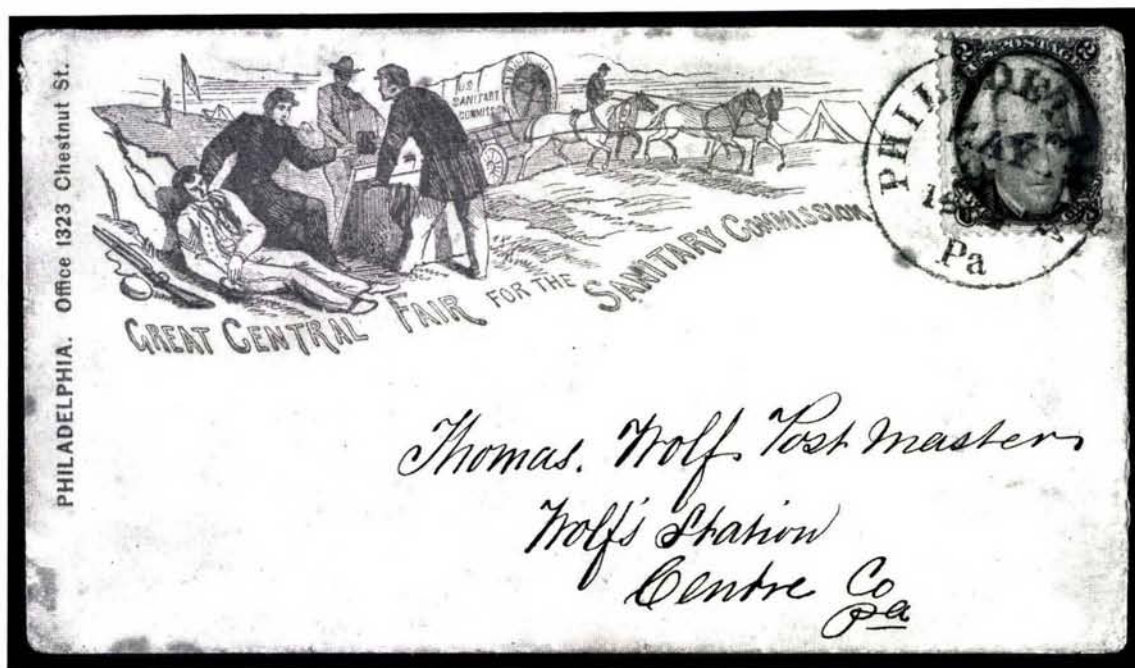 PHILADELPHIA. Office 1323 Chestnut St.
U.S.
SANITARY
COMMISS
GREAT CENTRAL FAIR FOR THE SANITARY COMMISSION
PHILADEL
Pa
Thomas. Wolf Post Master
Wolf's Station
Centre Co
Pa